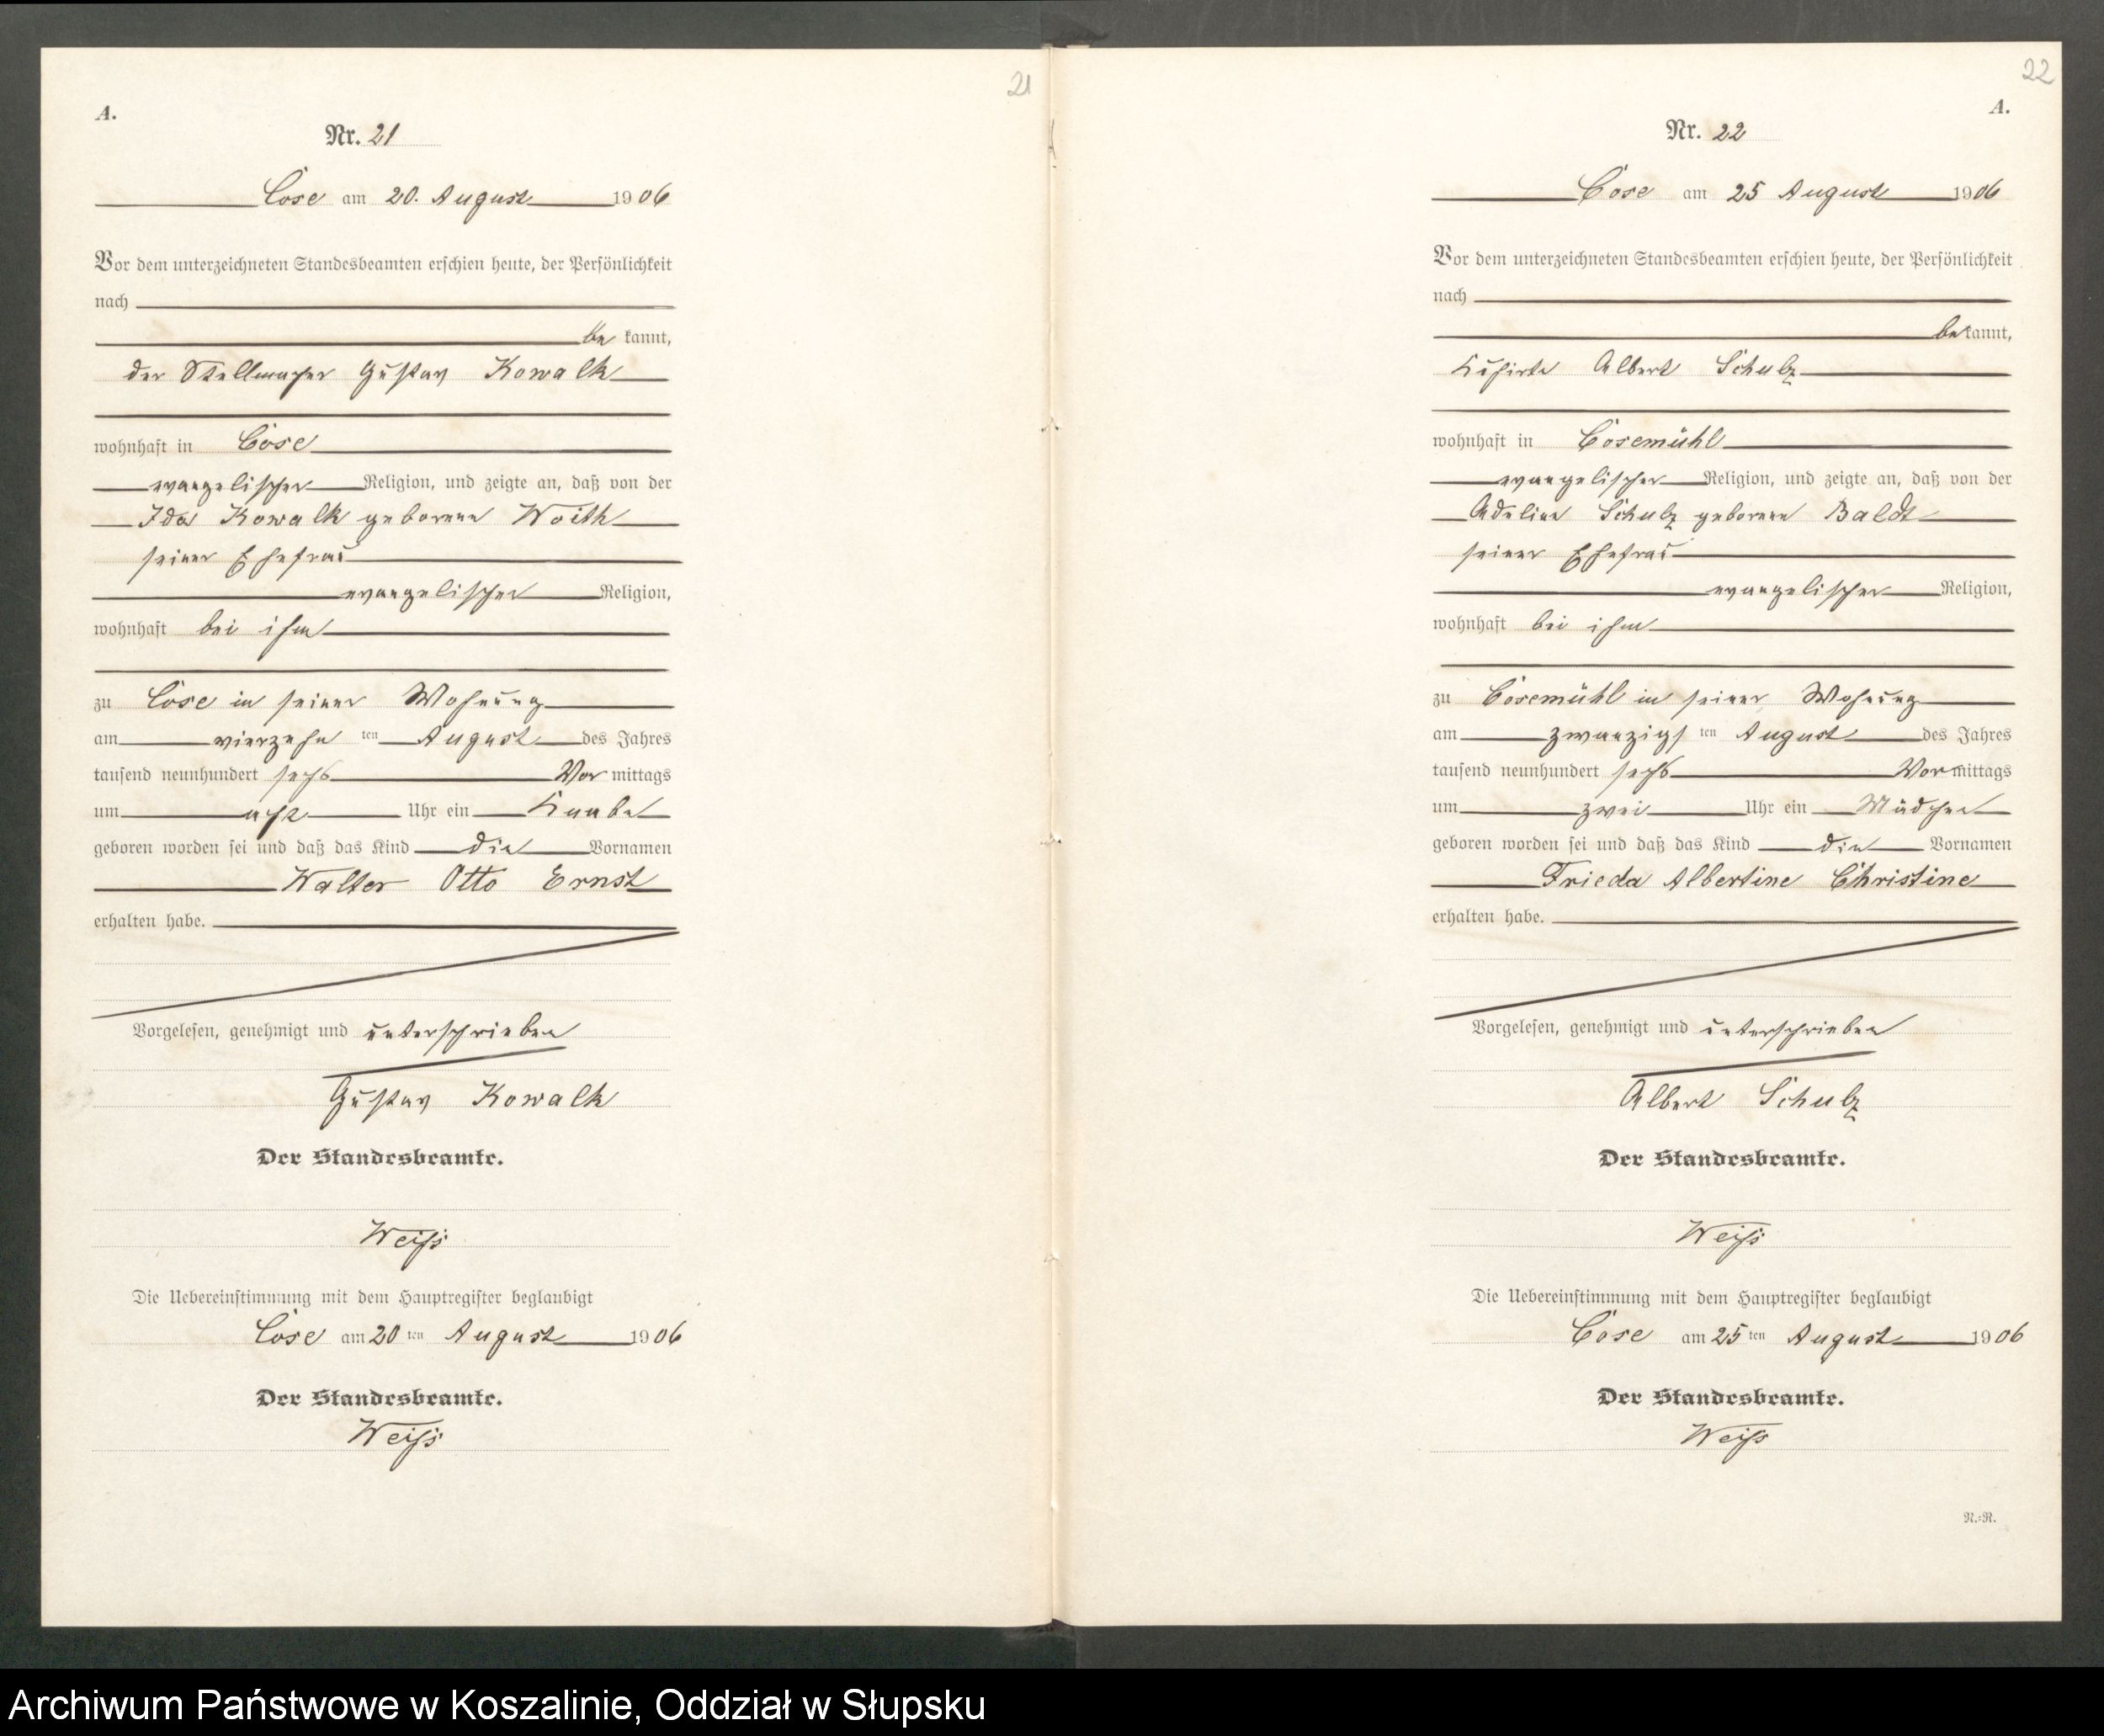 21
A.
Nr. 21
Cose am 20. August 1906
Vor dem unterzeichneten Standesbeamten erschien heute, der Persönlichkeit
nach
be kannt,
der Stellmacher Gustav Kowalk
wohnhaft in Cose
evangelischer Religion, und zeigte an, daß von der
Ida Kowalk geborene Woith
seiner Ehefrau
evangelischer Religion,
wohnhaft bei ihm
zu Cose in seiner Wohnung
am vierzehn ten August des Jahres
tausend neunhundert sechs Vor mittags
um acht Uhr ein Knabe
geboren worden sei und daß das Kind die Vornamen
Walter Otto Ernst
erhalten habe.
Vorgelesen, genehmigt und unterschrieben
Gustav Kowalk
Der Standesbeamte.
Weiß
Die Uebereinstimmung mit dem Hauptregister beglaubigt
Cose am 20 ten August 1906
Der Standesbeamte.
Weiß
22
A.
Nr. 22
Cose am 25 August 1906
Vor dem unterzeichneten Standesbeamten erschien heute, der Persönlichkeit
nach
bekannt,
Kuhirte Albert Schulz
wohnhaft in Cosemühl
evangelischer Religion, und zeigte an, daß von der
Adeline Schulz geborene Baldt
seiner Ehefrau
evangelischer Religion,
wohnhaft bei ihm
zu Cosemühl in seiner Wohnung
am zwanzigs ten August des Jahres
tausend neunhundert sechs Vormittags
um zwei Uhr ein Mädchen
geboren worden sei und daß das Kind die Vornamen
Frieda Albertine Christine
erhalten habe.
Vorgelesen, genehmigt und unterschrieben
Albert Schulz
Der Standesbeamte.
Weiß
Die Uebereinstimmung mit dem Hauptregister beglaubigt
Cose am 25 ten August 1906
Der Standesbeamte.
Weiß
N.=R.
Archiwum Państwowe w Koszalinie, Oddział w Słupsku